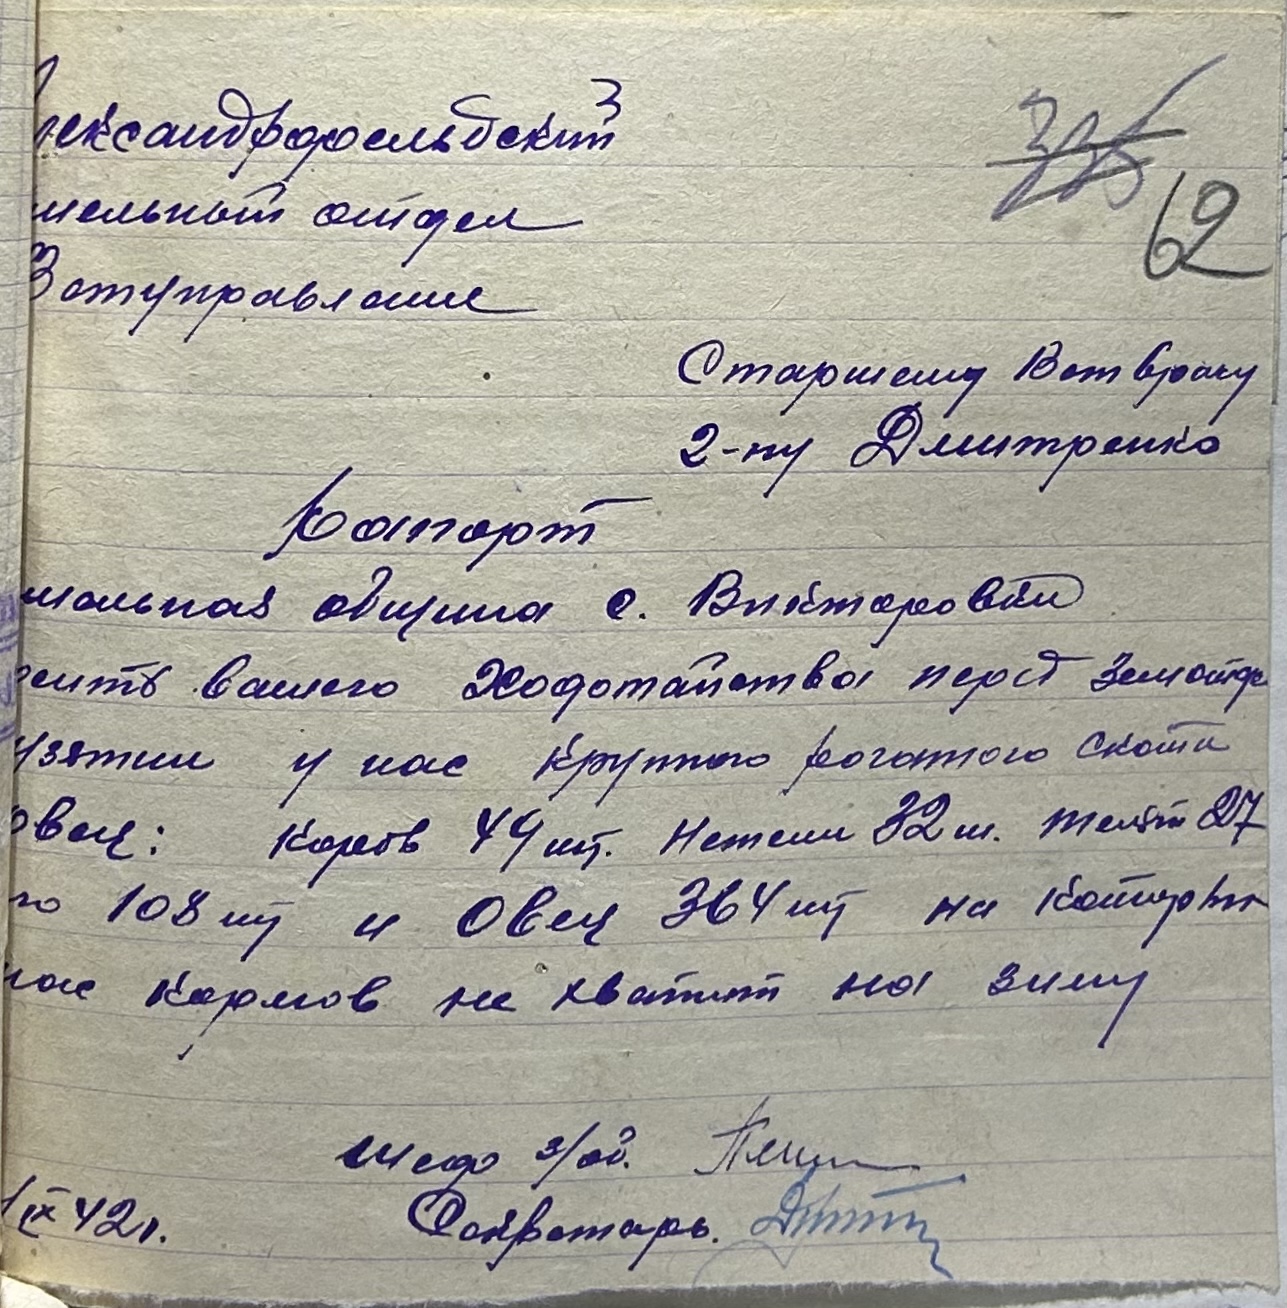 лександрфельдский
мельный отдел
Ветуправление
62
Старшему Ветврачу
г-ну Дмитренко
Рапорт
мельная община с. Викторовки
сить вашего Ходотайства перед Земотде
узятии у нас крупного рогатого скота
овец: коров 49 шт. Нетели 32 ш. телят 27
го 108 шт и Овец 364 шт на которых
нас кормов не хватит на зиму
з/об.
IX 42 г. Секретарь.